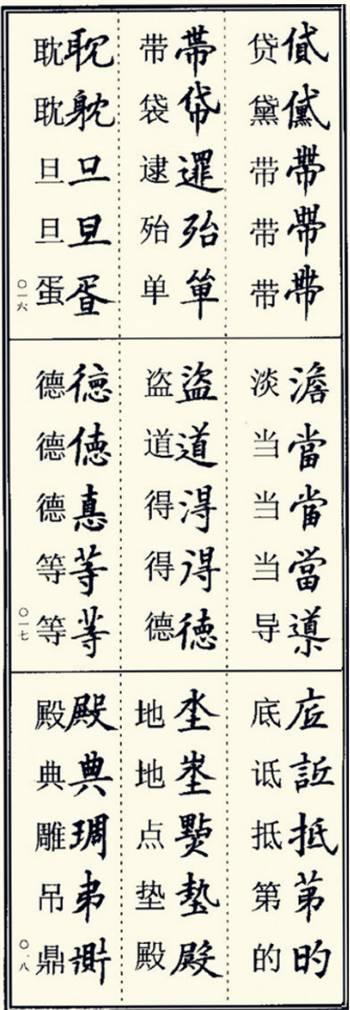 貸黛帶帶帶
贷黛带带带
帶帒逮殆單
带袋逮殆单
耽躭旦旦蛋
耽耽旦旦蛋
〇一六
澹當當當導
淡当当当导
盜道淂得徳
盗道得得德
徳徳悳等等
德德德等等
〇一七
底詆抵苐旳
底诋抵第的
坔埊點墊殿
地地点垫殿
殿典琱弔鼎
殿典雕吊鼎
〇一八